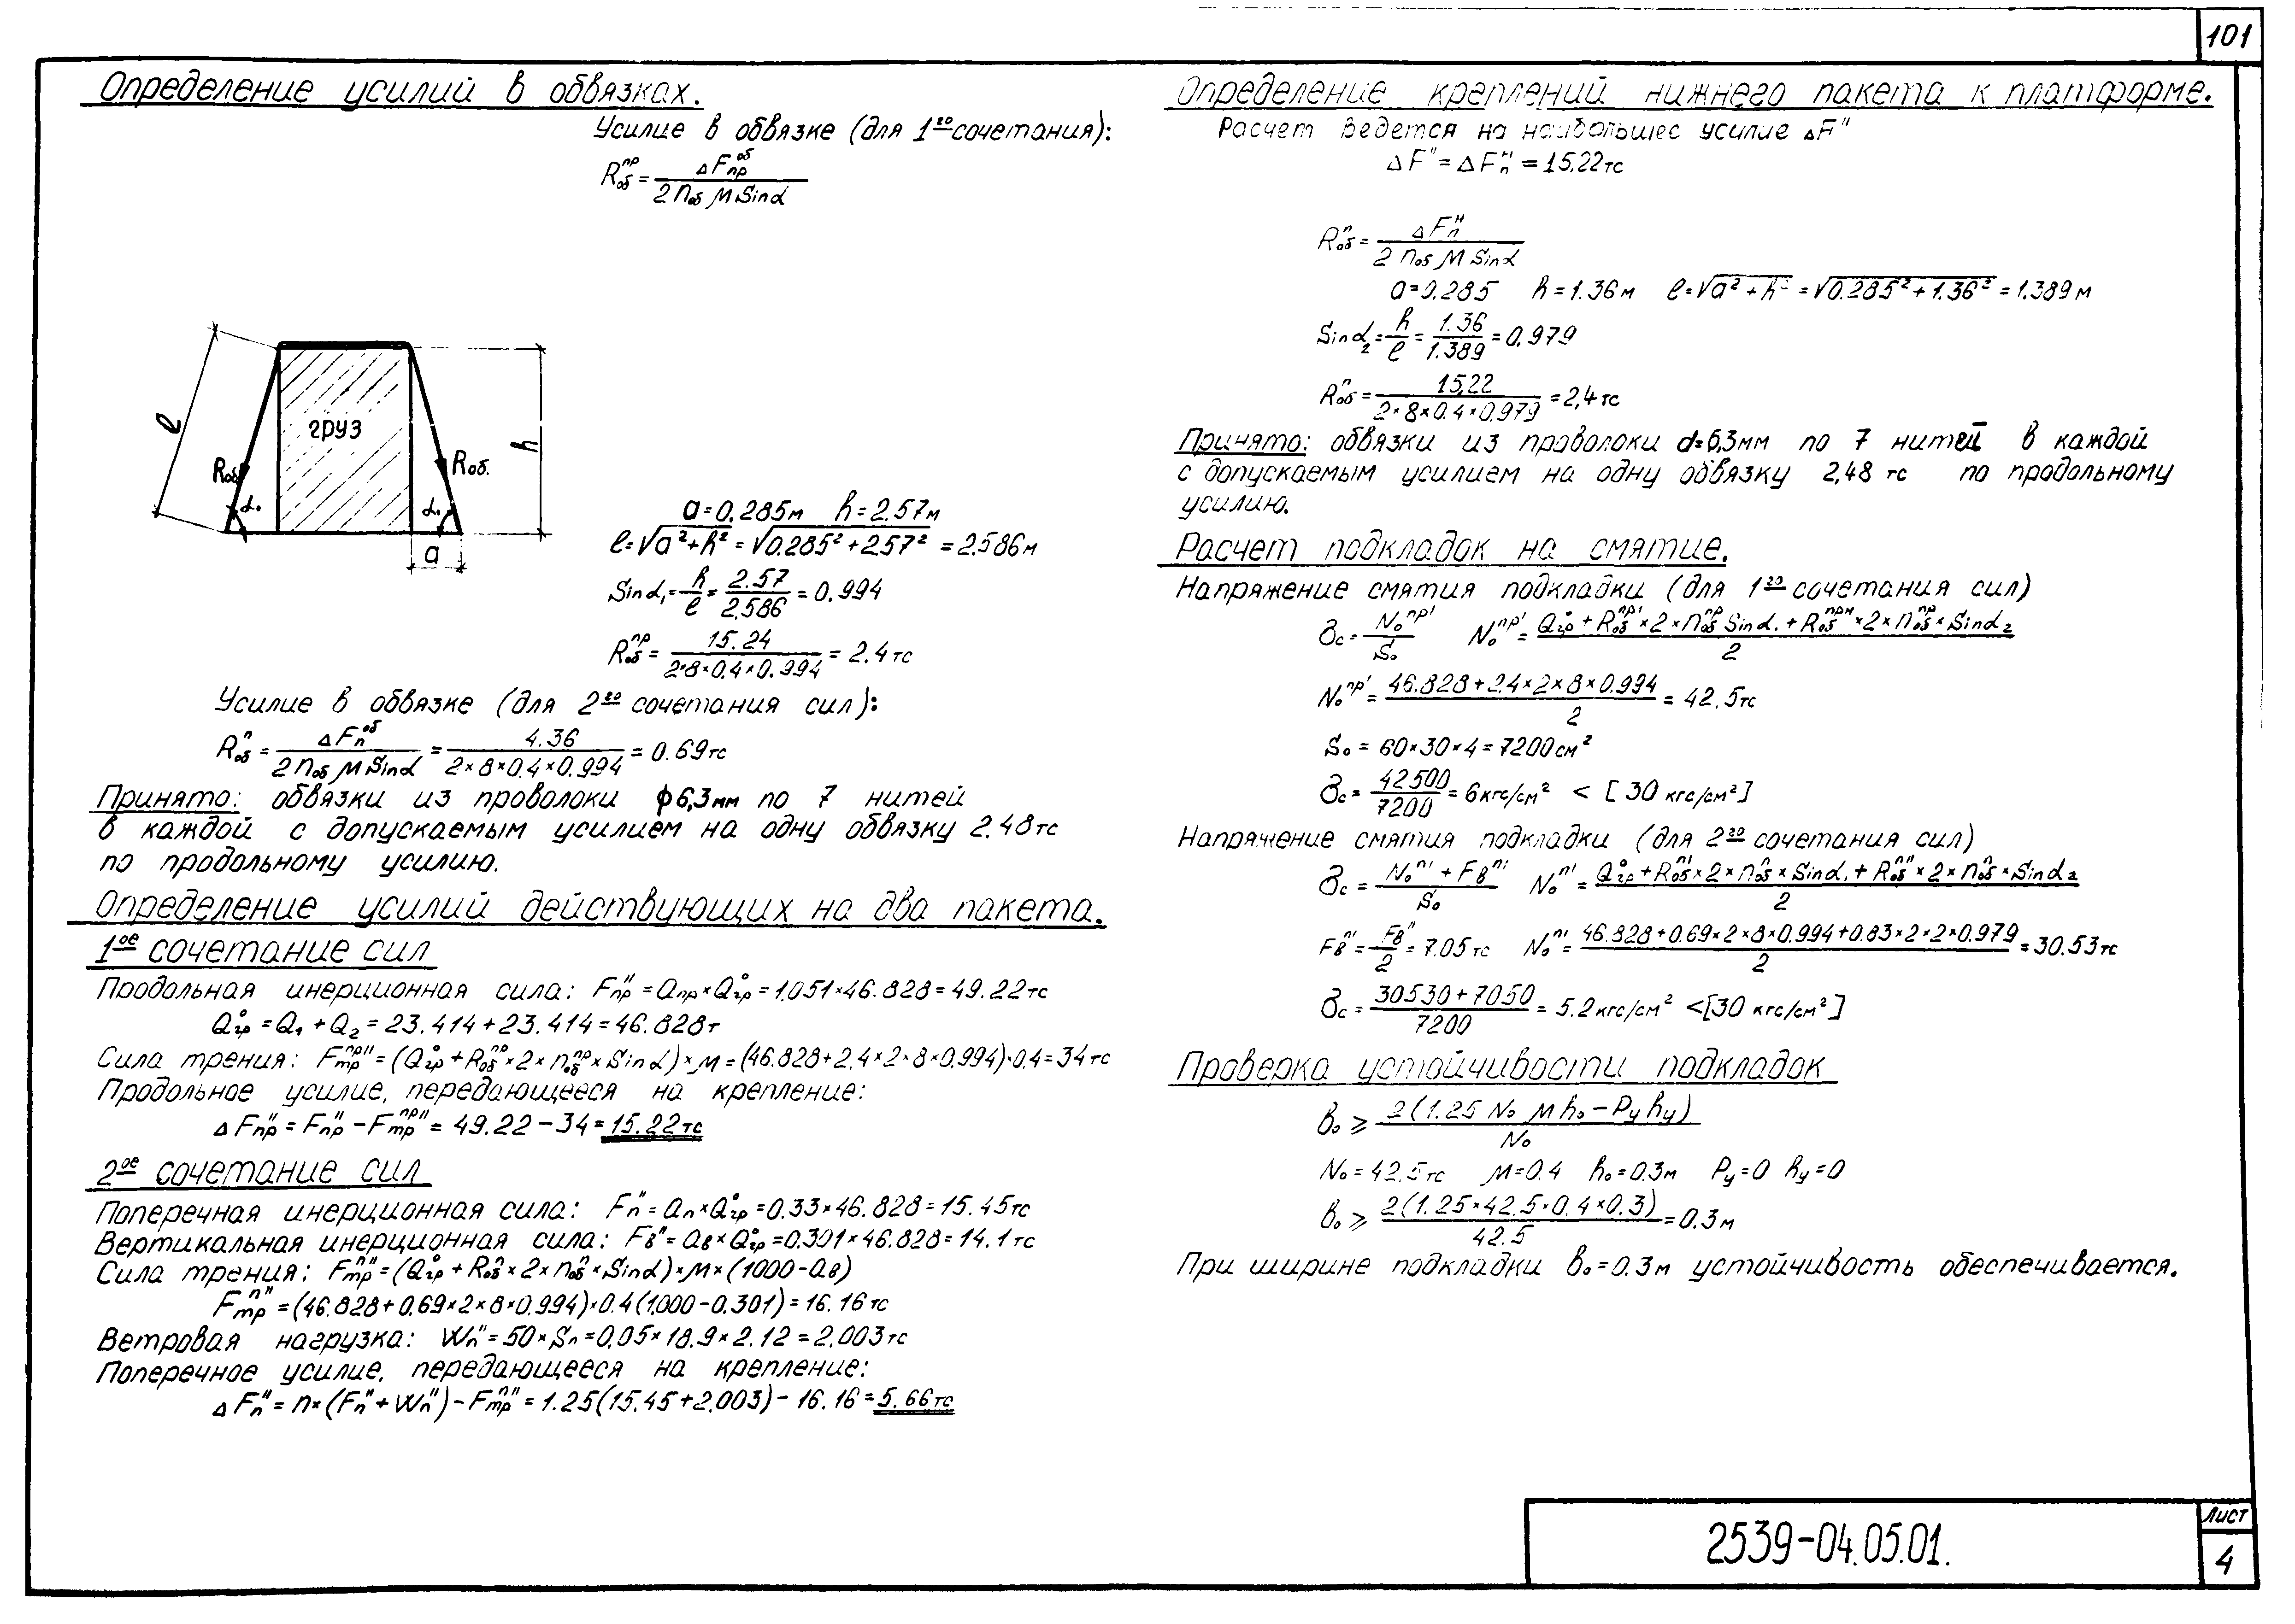 101
Определение усилий в обвязках.
Усилие в обвязке (для 1го сочетания):
Rоб^пр = ΔFпр^об / (2 nоб μ Sinα)
ℓ
груз
Rоб
Rоб.
h
α₁ α₁
a
a=0.285м h=2.57м
ℓ=√(a²+h²) = √(0.285²+2.57²) = 2.586м
Sinα₁ = h/ℓ = 2.57/2.586 = 0.994
Rоб^пр = 15.24 / (2×8×0.4×0.994) = 2.4тс
Усилие в обвязке (для 2го сочетания сил):
Rоб^п = ΔFп^об / (2 nоб μ Sinα) = 4.36 / (2×8×0.4×0.994) = 0.69тс
Принято: обвязки из проволоки ϕ6,3мм по 7 нитей
в каждой с допускаемым усилием на одну обвязку 2.48тс
по продольному усилию.
Определение усилий действующих на два пакета.
1ое сочетание сил
Продольная инерционная сила: Fпр" = aпр × Qгр° = 1.051×46.828=49.22тс
Qгр° = Q₁ + Q₂ = 23.414+23.414=46.828т
Сила трения: Fтр^пр" = (Qгр° + Rоб^пр × 2 × nоб^пр × Sinα) × μ = (46.828+2.4×2×8×0.994)×0.4=34тс
Продольное усилие, передающееся на крепление:
ΔFпр" = Fпр" − Fтр^пр" = 49.22−34=15.22тс
2ое сочетание сил
Поперечная инерционная сила: Fп" = aп×Qгр° = 0.33×46.828=15.45тс
Вертикальная инерционная сила: Fв" = aв×Qгр° = 0.301×46.828=14.1тс
Сила трения: Fтр^п" = (Qгр° + Rоб^п × 2 × nоб^п × Sinα)×μ×(1000−aв)
Fтр^п" = (46.828+0.69×2×8×0.994)×0.4(1.000−0.301)=16.16тс
Ветровая нагрузка: Wп" = 50×Sп=0.05×18.9×2.12=2.003тс
Поперечное усилие, передающееся на крепление:
ΔFп" = n×(Fп"+Wп")−Fтр^п" = 1.25(15.45+2.003)−16.16=5.66тс
Определение креплений нижнего пакета к платформе.
Расчет ведется на наибольшее усилие ΔF"
ΔF" = ΔFп^н = 15.22тс
Rоб^п = ΔFп^н / (2 nоб μ Sinα)
a=0.285 h=1.36м ℓ=√(a²+h²) = √(0.285²+1.36²) = 1.389м
Sinα₂ = h/ℓ = 1.36/1.389 = 0.979
Rоб^п = 15.22 / (2×8×0.4×0.979) = 2,4тс
Принято: обвязки из проволоки d=6,3мм по 7 нитей в каждой
с допускаемым усилием на одну обвязку 2,48 тс по продольному
усилию.
Расчет подкладок на смятие.
Напряжение смятия подкладки (для 1го сочетания сил)
σс = N₀^пр' / S₀ N₀^пр' = (Qгр° + Rоб^пр' × 2 × nоб^пр Sinα₁ + Rоб^прн × 2 × nоб^пр × Sinα₂) / 2
N₀^пр' = (46.828+2.4×2×8×0.994) / 2 = 42.5тс
S₀ = 60×30×4=7200см²
σс = 42500/7200 = 6кгс/см² < [30 кгс/см²]
Напряжение смятия подкладки (для 2го сочетания сил)
σс = (N₀^п' + Fв^п') / S₀ N₀^п' = (Qгр° + Rоб^п' × 2 × nоб^п × Sinα₁ + Rоб^п" × 2 × nоб^п × Sinα₂) / 2
Fв^п' = Fв"/2 = 7.05тс N₀^п' = (46.828+0.69×2×8×0.994+0.83×2×2×0.979) / 2 = 30.53тс
σс = (30530+7050) / 7200 = 5.2кгс/см² <[30 кгс/см²]
Проверка устойчивости подкладок
в₀ ⩾ 2(1.25 N₀ μ h₀ − Pу hу) / N₀
N₀=42.5тс μ=0.4 h₀=0.3м Pу=0 hу=0
в₀ ⩾ 2(1.25×42.5×0.4×0.3) / 42.5 = 0.3м
При ширине подкладки в₀=0.3м устойчивость обеспечивается.
2539-04.05.01.
Лист
4